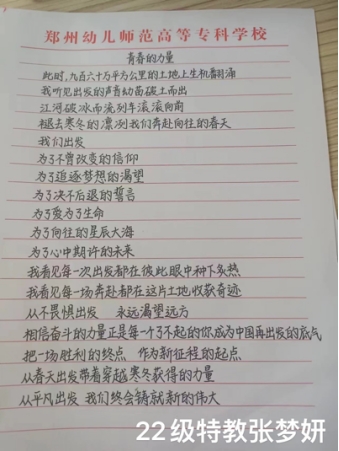 郑州幼儿师范高等专科学校
青春的力量
此时,九百六十万平方公里的土地上生机翻涌
我听见出发的声音幼苗破土而出
江河破冰而流列车滚滚向前
褪去寒冬的凛冽我们奔赴向往的春天
我们出发
为了不曾改变的信仰
为了追逐梦想的渴望
为了决不后退的誓言
为了爱为了生命
为了向往的星辰大海
为了心中期许的未来
我看见每一次出发都在彼此眼中种下炙热
我看见每一场奔赴都在这片土地收获奇迹
从不畏惧出发 永远渴望远方
相信奋斗的力量正是每一个了不起的你成为中国再出发的底气
把一场胜利的终点 作为新征程的起点
从春天出发带着穿越寒冬获得的力量
从平凡出发 我们终会铸就新的伟大
22级特教张梦妍